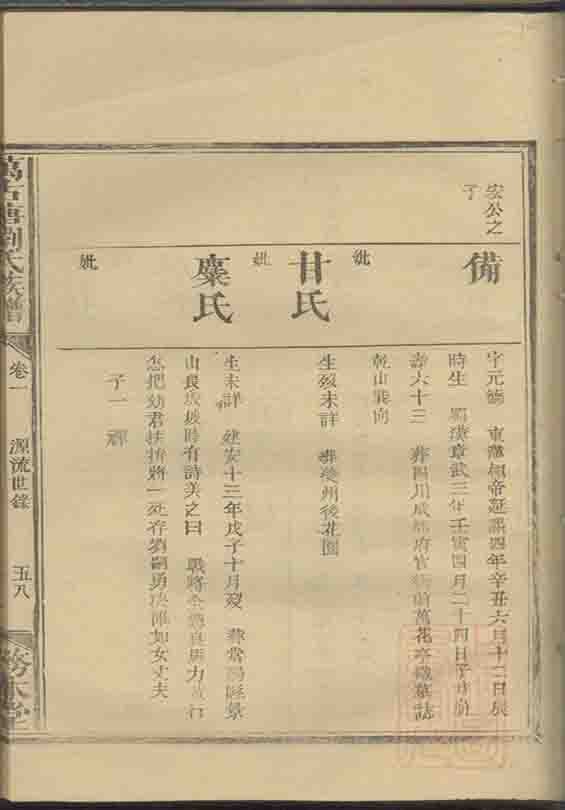 宏公之
子
備
字元德 東漢桓帝延熹四年辛丑六月十二日辰
時生 蜀漢章武三年壬寅四月二十四日子時崩
壽六十三 葬四川成都府官街前萬花亭 墓誌
乾山巽向
妣
甘氏
生歿未詳 葬夔州後花園
妣
糜氏
生未詳 建安十三年戊子十月歿 葬當陽縣景
山長坂坡時有詩美之曰 戰將全憑良馬力
怎把幼君扶拚將一死存劉嗣勇决維如女丈夫
子一禪
妣
萬石唐劉氏族譜
卷一
源流世錄
五八
務本堂